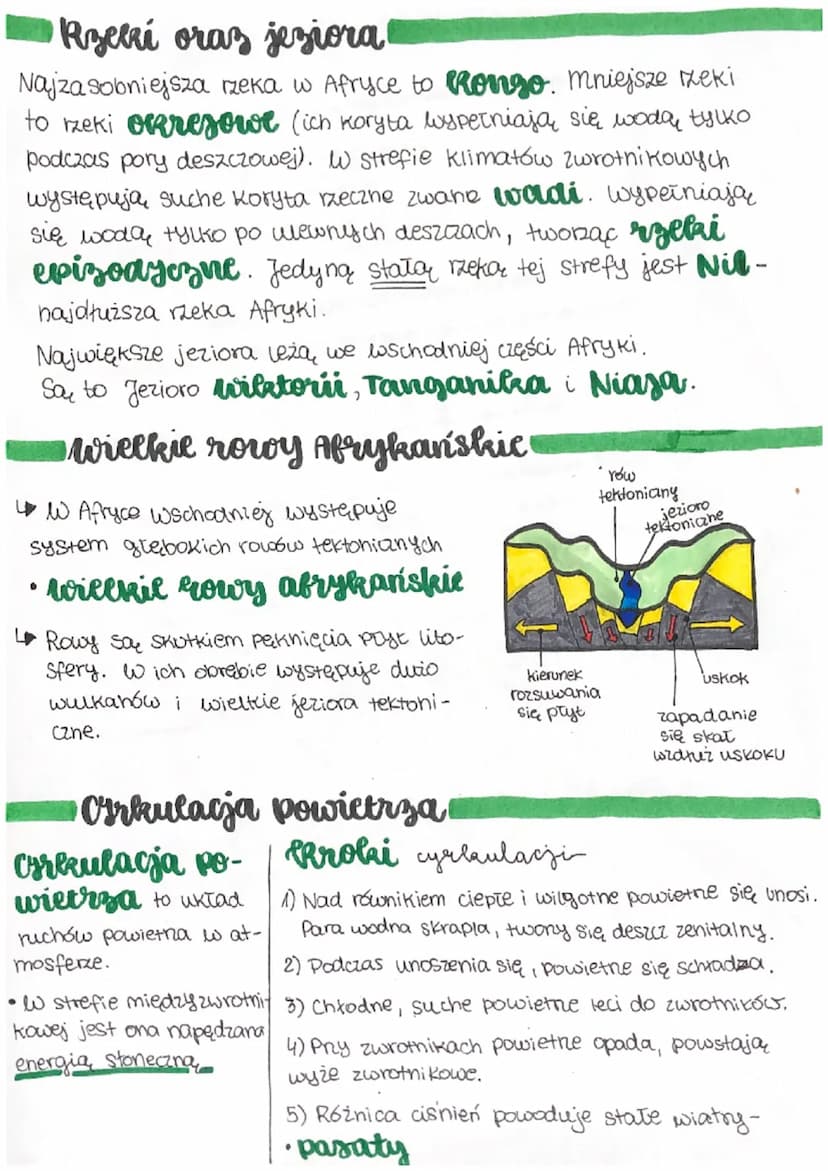 Rzeki oraz jeziora
Najzasobniejsza rzeka w Afryce to Kongo. Mniejsze rzeki
to rzeki okresowe (ich koryta wypełniają się wodą tylko
podczas pory deszczowej). W strefie klimatów zwrotnikowych
występują suche koryta rzeczne zwane wadi. Wypełniają
się wodą tylko po ulewnych deszczach, tworząc rzeki
epizodyczne. Jedyną stałą rzeką tej strefy jest Nil-
najdłuższa rzeka Afryki.
Największe jeziora leżą we wschodniej części Afryki.
Są to Jezioro Wiktorii, Tanganika i Niasa.
Wielkie rowy Afrykańskie
↳ W Afryce wschodniej występuje
system głębokich rowów tektonicznych
• wielkie rowy afrykańskie
↳ Rowy są skutkiem pęknięcia płyt lito-
sfery. W ich obrębie występuje dużo
wulkanów i wielkie jeziora tektoni-
czne.
rów
tektoniczny
jezioro
tektoniczne
kierunek
rozsuwania
się płyt
uskok
zapadanie
się skał
wzdłuż uskoku
Cyrkulacja powietrza
Cyrkulacja po-
wietrza to układ
ruchów powietrza w at-
mosferze.
• W strefie międzyzwrotni-
kowej jest ona napędzana
energią słoneczną
Kroki cyrkulacji
1) Nad równikiem ciepłe i wilgotne powietrze się unosi.
Para wodna skrapla, tworzy się deszcz zenitalny.
2) Podczas unoszenia się, powietrze się schładza.
3) Chłodne, suche powietrze leci do zwrotników.
4) Przy zwrotnikach powietrze opada, powstają
wyże zwrotnikowe.
5) Różnica ciśnień powoduje stałe wiatry-
• pasaty